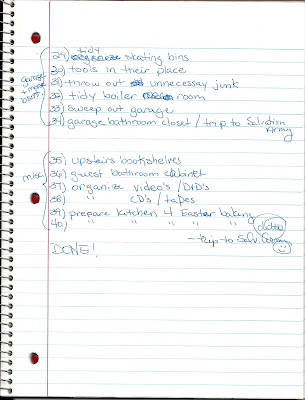 tidy
29) skating bins
garage 30) tools in their place
31) throw out unnecessay junk
32) tidy boiler room
33) sweep out garage
34) garage bathroom closet / trip to Salvation
Army
35) upstairs bookshelves
misc 36) guest bathroom cabinet
37) organize video's / DVD's
38) " CD's / tapes
39) prepare kitchen 4 Easter baking
40) " " " " "
- trip to Salv.
DONE!